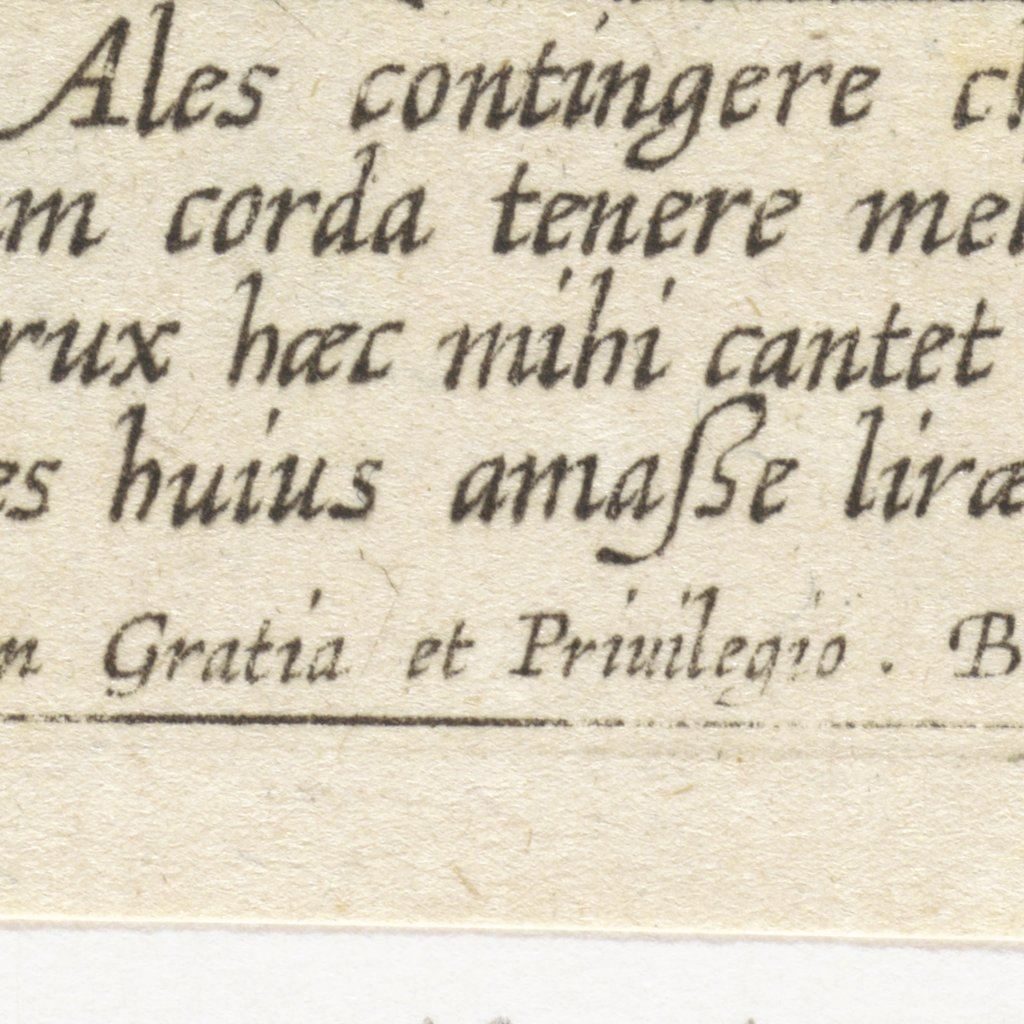 Ales contingere
corda tenere
hæc mihi cantet
huius amaſse liræ
Gratia et Priuilegio .